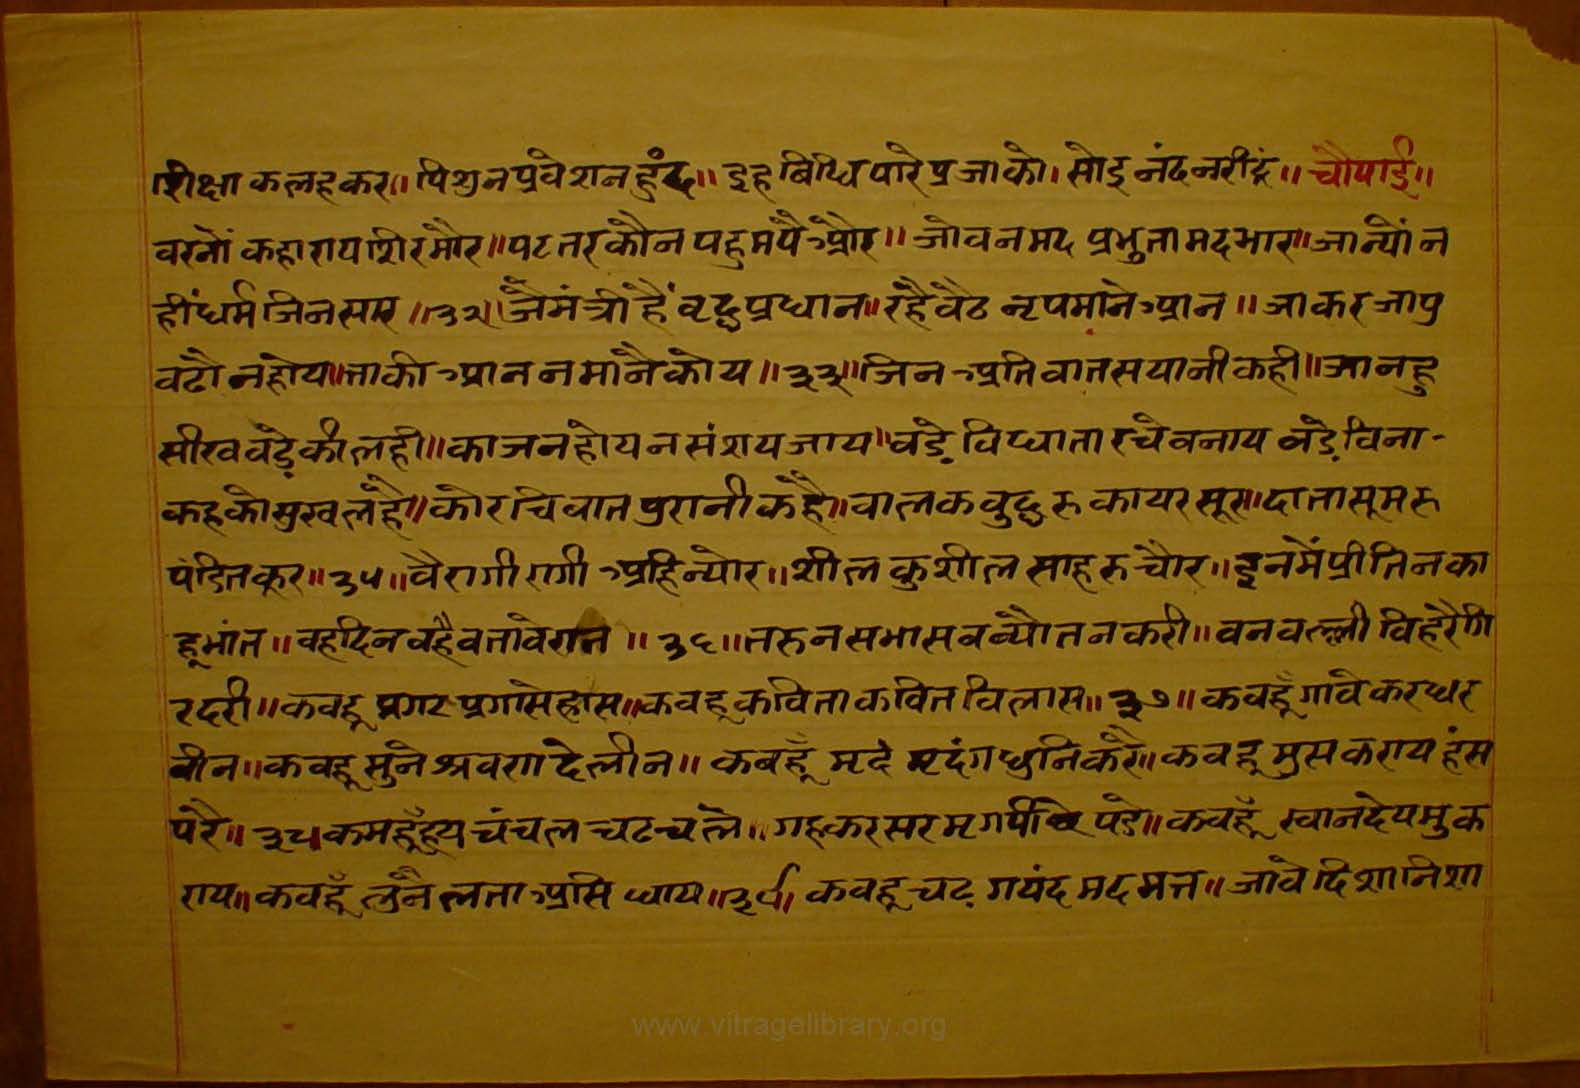 शिक्षा कलहकर॥ पिशुनप्रवेशन हुंद॥ इह बिधि पारे प्रजाको। सोइ नंद नरींद्रं॥ चौपाई॥
वरनों कहा राय शिरमौर॥ पटतर कौन पहुमपै और॥ जोवनमद प्रभुतामद भार॥ जान्यों न
हीं धर्म जिनसार॥३२॥ जैमंत्री हैं वृद्ध प्रधान॥ रहै वैठ नृप माने आन॥ जाकर जापु
वटौ न होय॥ ताकी आन न मानै कोय॥३३॥ जिन प्रति वात सयानी कही॥ जानहु
सीख वड़ेकी लही॥ काज न होय न संशय जाय॥ वड़े विधाता रचे वनाय वड़े विना-
कहको सुख लहै॥ को रचि वात पुरानी कहै॥ वालक वुद्ध रु कायर सूर॥ दाता सूम रु
पंडित कूर॥३५॥ वैरागी रागी अहि न्योर॥ शील कुशील साह रु चौर॥ इनमें प्रीति न का
हू भांत॥ वहदिन वहै वतावे गात॥३६॥ तरुन सभा सव न्यौतन करी॥ वन वल्ली विहरै गि
र दरी॥ कवहू प्रगासे हास॥ कवहू कविता कवित विलास॥३७॥ कवहूँ गावे कर धर
वीन॥ कवहू सुने श्रवण दे लीन॥ कबहूँ मृदंग धुनि करै॥ कवहू मुसकराय हंस
परै॥३८॥ कमहूँ हय चंचल चढ चले॥ गहकर सर मृग पडे॥ कवहूँ स्वान देय मुक
राय॥ कवहूँ लुनै लता असि धाय॥३९॥ कवहू चढ़ गयंद मदमत्त॥ जावे दिशा निशा
www.vitragelibrary.org